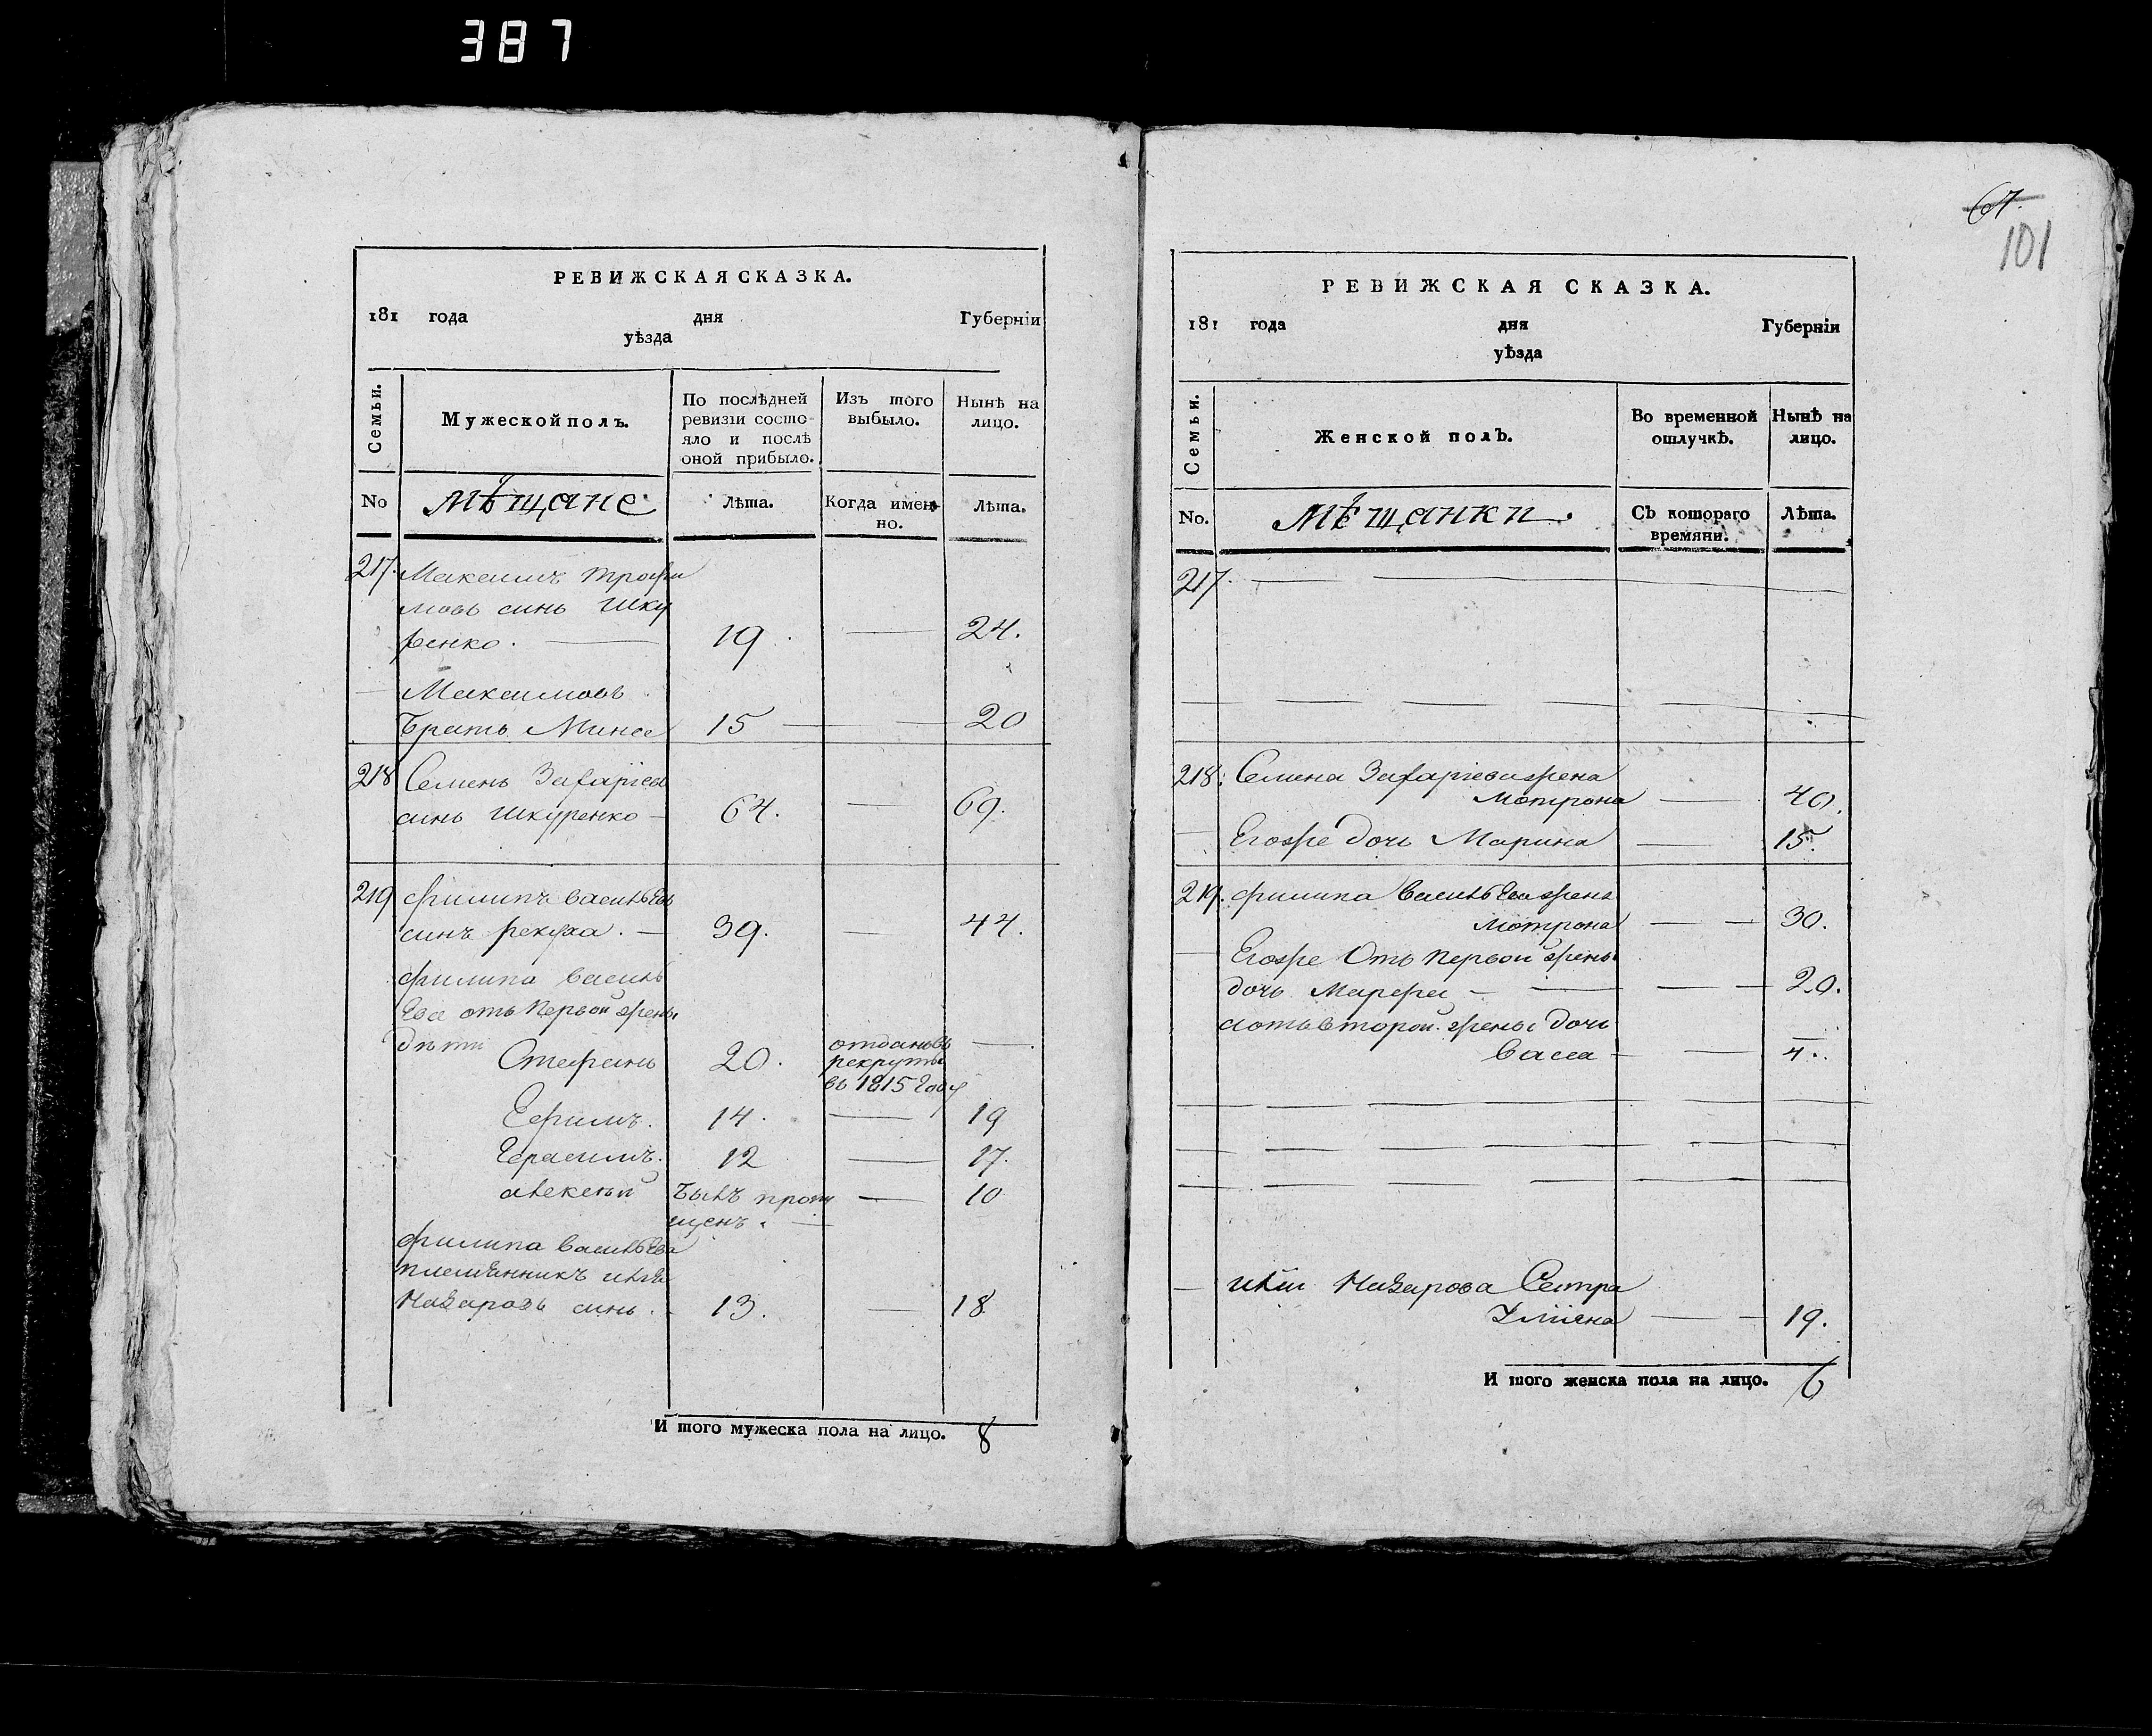 387
РЕВИЖСКАЯ СКАЗКА.
181 года дня Губерніи
уѣзда
Семьи.
Мужеской полъ.
По послѣдней
ревизіи состо-
яло и послѣ
оной прибыло.
Изъ того
выбыло.
Нынѣ на
лицо.
No
мѣщане
Лѣта.
Когда имен-
но.
Лѣта.
217. Максимъ Трофи
мовъ синъ Шку
ренко. 19. 24.
Максимовъ
братъ Мина 15 20
218 Семенъ Захаріевъ
синъ Шкуренко 64. 69.
219 филипъ васильевъ
синъ рекуха. 39. 44.
филипа василь
ева отъ первой жены
дѣти Стефанъ 20. отданъ въ
рекруты
въ 1815 году
Ефимъ. 14. 19
Герасимъ. 12 17.
алексѣй Былъ пропу
щенъ. 10
филипа васильева
племѣнникъ илѣя
Назаровъ синъ. 13. 18
И того мужеска пола на лицо. 8
67.
101
РЕВИЖСКАЯ СКАЗКА.
181 года дня Губерніи
уѣзда
Семьи.
Женской полъ.
Во временной
отлучкѣ.
Нынѣ на
лицо.
No.
мѣщанки.
Съ котораго
времяни.
Лѣта.
217.
218. Семена Захаріева жена
Мотрона 40.
Егоже дочь Марина 15.
219. филипа васильева жена
Мотрона 30.
Егоже Отъ первой жены
дочь Марфа 20.
аотъ второй жены дочь
васа 4.
илѣи Назарова Сестра
Улііена 19.
И того женска пола на лицо. 6